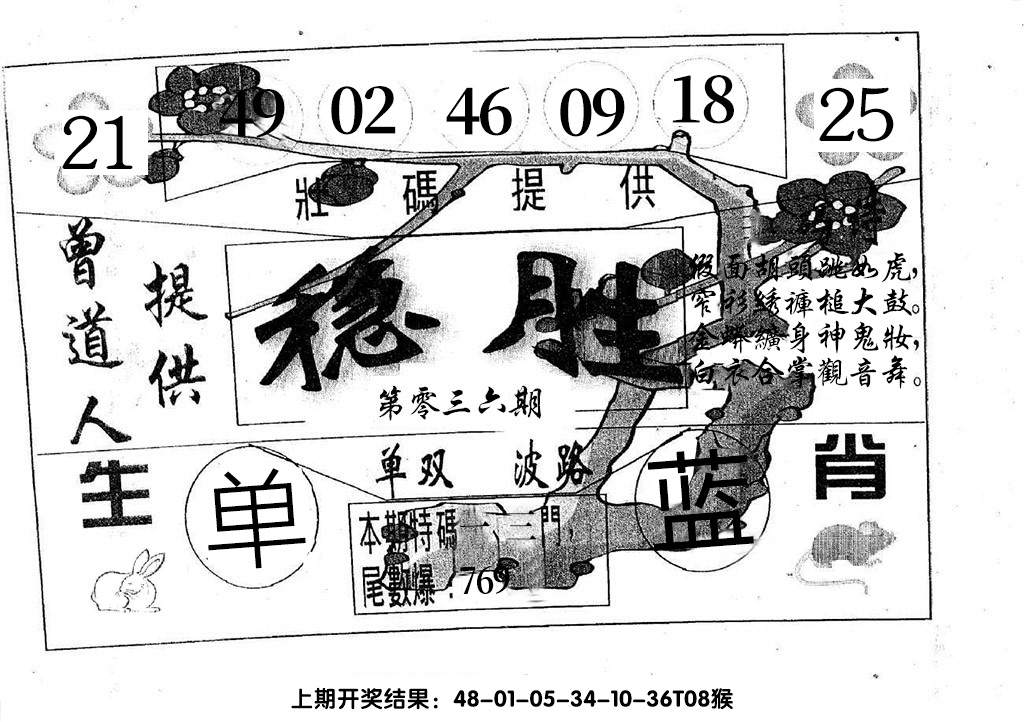 21 49 02 46 09 18 25
壯碼提供
特
曾道人
提供
稳胜
第零三六期
假面胡頭跳如虎，
窄衫綉褲槌大鼓。
金蟒纈身神鬼妝，
白衣合掌觀音舞。
单双 波路
生肖
单
蓝
本期特碼一、三門，
尾數爆：769
上期开奖结果：48-01-05-34-10-36T08猴